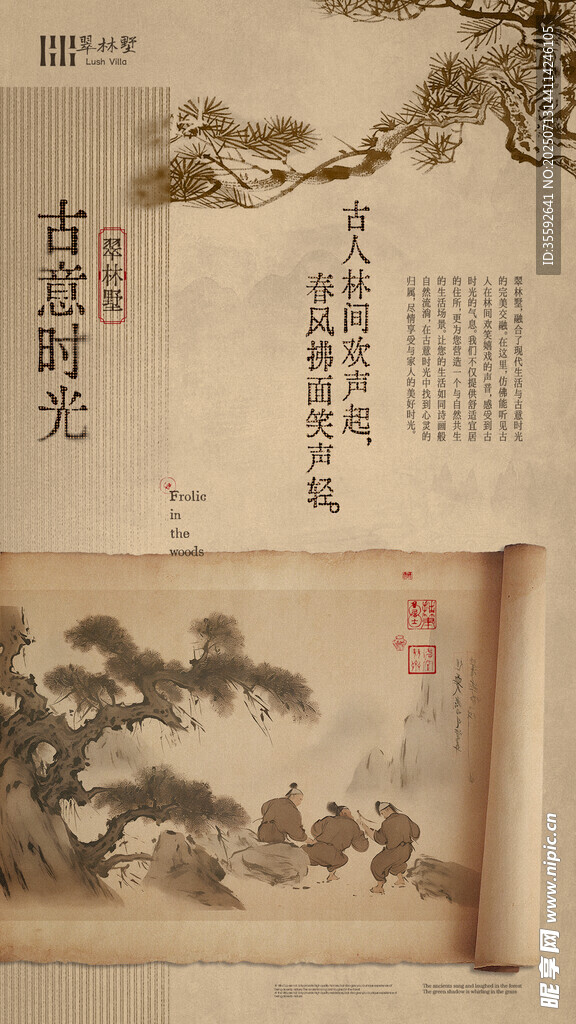 翠林墅
Lush Villa
古意时光
翠林墅
古人林间欢声起，
春风拂面笑声轻。
翠林墅，融合了现代生活与古意时光
的完美交融。在这里，仿佛能听见古
人在林间欢笑嬉戏的声音，感受到古
时光的气息。我们不仅提供舒适宜居
的住所，更为您营造一个与自然共生
的生活场景。让您的生活如同诗画般
自然流淌，在古意时光中找到心灵的
归属，尽情享受与家人的美好时光。
Frolic
in
the
woods
The ancients sang and laughed in the forest
The green shadow is whirling in the grass
ID:35592641 NO:20250713144114246105
昵享网 www.nipic.cn